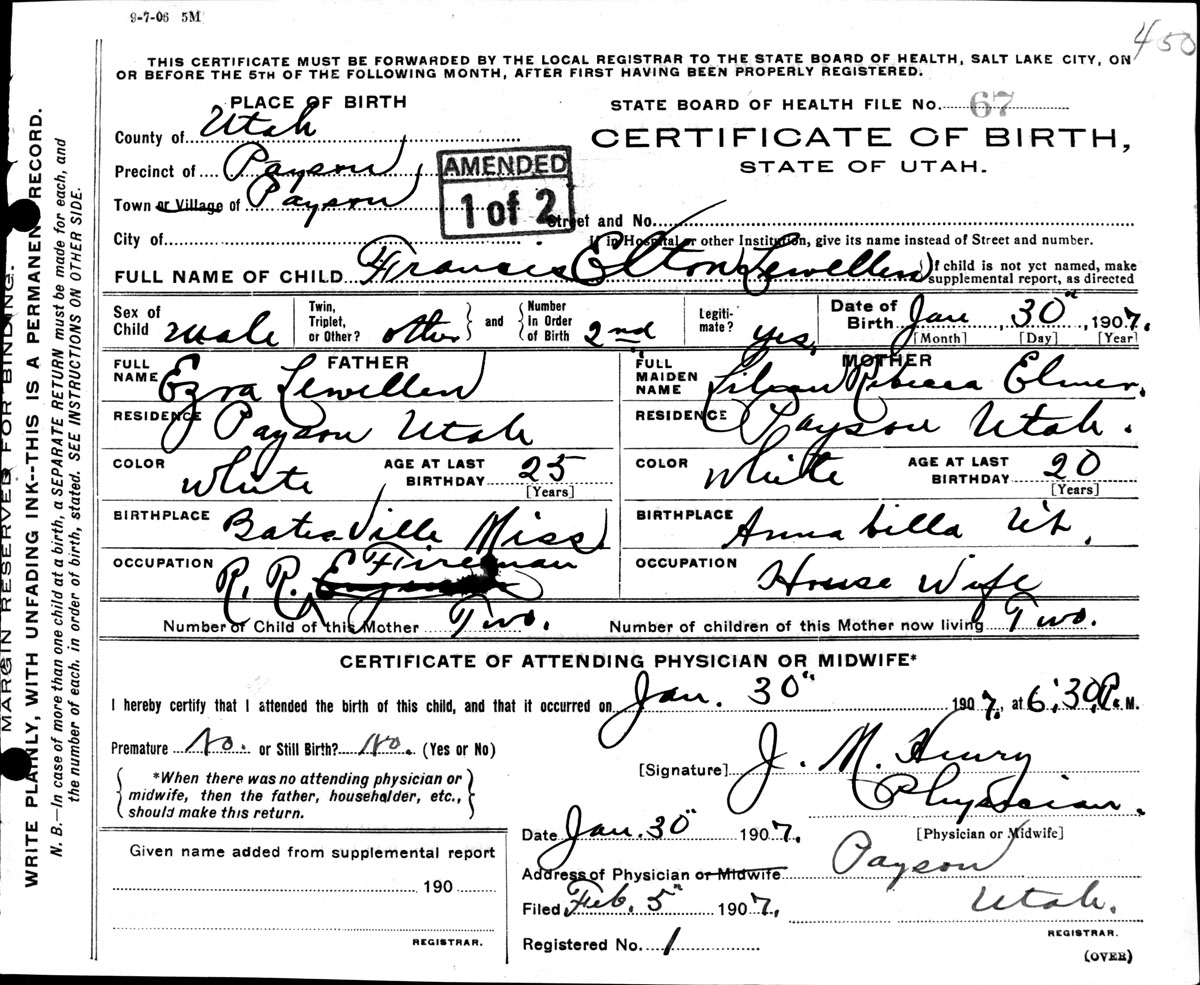 9-7-06 5M
450
THIS CERTIFICATE MUST BE FORWARDED BY THE LOCAL REGISTRAR TO THE STATE BOARD OF HEALTH, SALT LAKE CITY, ON
OR BEFORE THE 5TH OF THE FOLLOWING MONTH, AFTER FIRST HAVING BEEN PROPERLY REGISTERED.
PLACE OF BIRTH
STATE BOARD OF HEALTH FILE No. 67
County of Utah
CERTIFICATE OF BIRTH,
STATE OF UTAH.
Precinct of Payson
AMENDED
1 of 2
Town or Village of Payson
Street and No.
City of
If in Hospital or other Institution, give its name instead of Street and number.
FULL NAME OF CHILD Francis Elton Lewellen
If child is not yet named, make
supplemental report, as directed
Sex of Child male
Twin, Triplet, or Other? other
and
Number In Order of Birth 2nd
Legiti-mate? yes,
Date of Birth Jan 30", 1907.
[Month] [Day] [Year]
FATHER
FULL NAME Ezra Lewellen
MOTHER
FULL MAIDEN NAME Rebecca Elmer.
RESIDENCE Payson Utah
RESIDENCE Payson Utah.
COLOR White
AGE AT LAST BIRTHDAY 25
[Years]
COLOR White
AGE AT LAST BIRTHDAY 20
[Years]
BIRTHPLACE Batesville Miss
BIRTHPLACE Annabilla Ut.
OCCUPATION R. R. Fireman
OCCUPATION House Wife
Number of Child of this Mother Two.
Number of children of this Mother now living Two.
CERTIFICATE OF ATTENDING PHYSICIAN OR MIDWIFE*
I hereby certify that I attended the birth of this child, and that it occurred on Jan. 30" 1907, at 6:30 P. M.
Premature No. or Still Birth? No. (Yes or No)
[Signature] J. M. Henry
Physician.
[Physician or Midwife]
*When there was no attending physician or
midwife, then the father, householder, etc.,
should make this return.
Date Jan. 30" 1907.
Given name added from supplemental report
190
REGISTRAR.
Address of Physician or Midwife Payson
Utah.
Filed Feb. 5" 1907.
REGISTRAR.
Registered No. 1
(OVER)
MARGIN RESERVED FOR BINDING.
WRITE PLAINLY, WITH UNFADING INK--THIS IS A PERMANENT RECORD.
N. B.—In case of more than one child at a birth, a SEPARATE RETURN must be made for each, and
the number of each, in order of birth, stated. SEE INSTRUCTIONS ON OTHER SIDE.